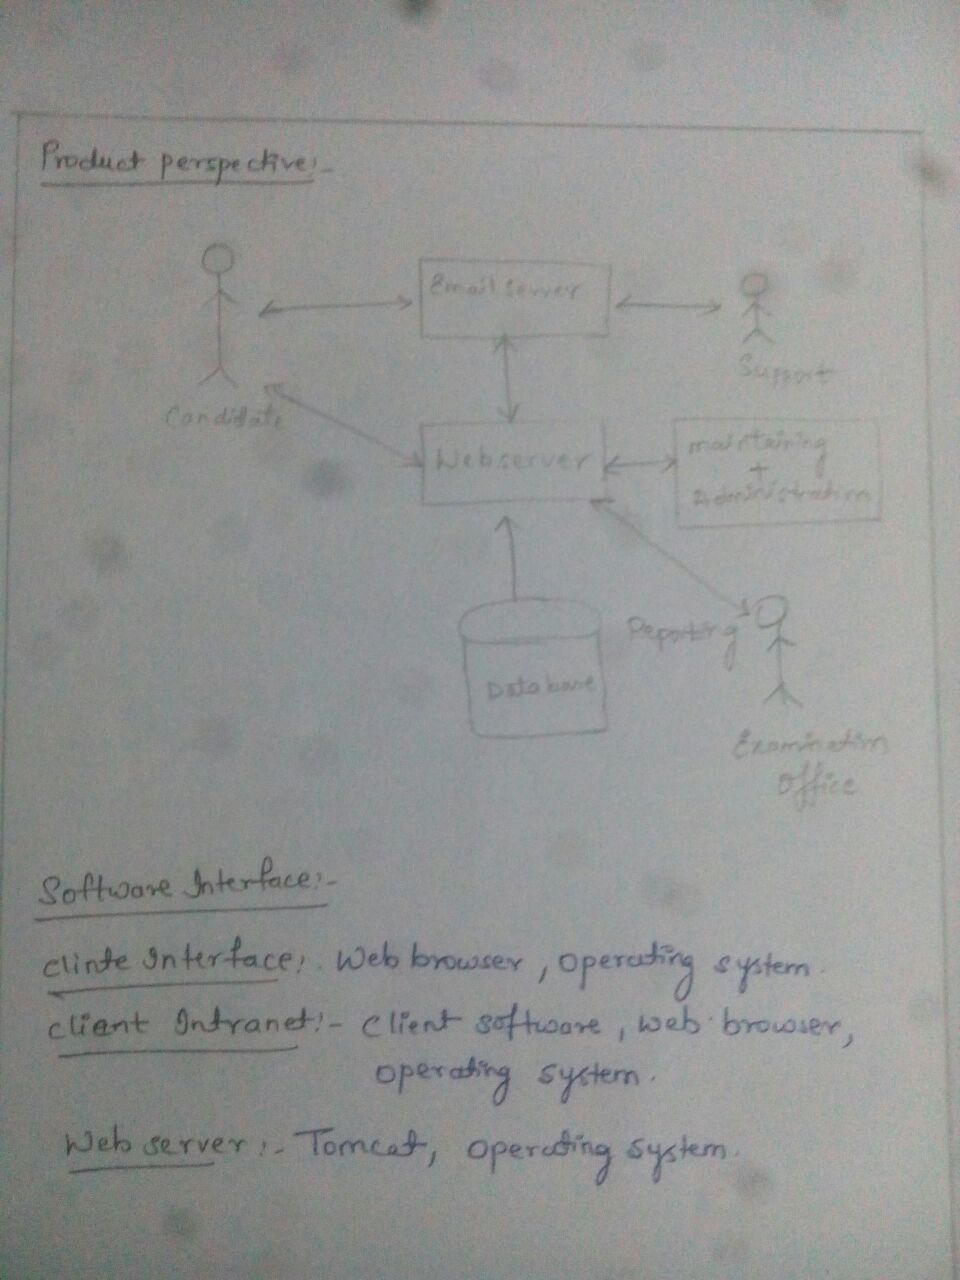 Product perspective:-
Email server
Support
Candidate
Webserver
maintaining
+
administration
Reporting
Database
Examination
office
Software Interface:-
clinte Interface:. Web browser, operating system.
client Intranet:- Client software, web browser,
operating system.
Web server:- Tomcat, operating system.